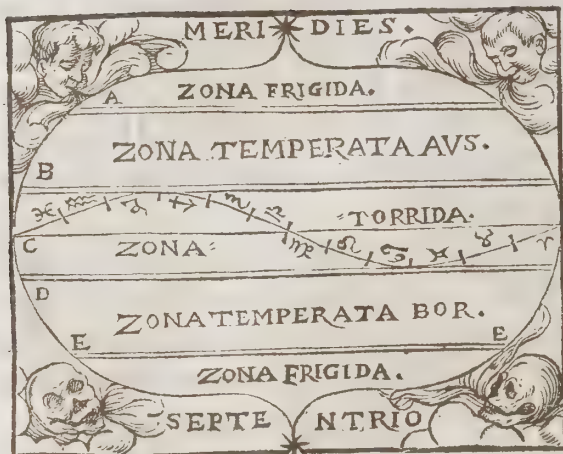 MERI DIES.
A ZONA FRIGIDA.
ZONA TEMPERATA AVS.
B
♓ ♒ ♑ ♐ ♏ ♎ TORRIDA.
C ZONA ♍ ♌ ♋ ♊ ♉ ♈
D
ZONA TEMPERATA BOR.
E E
ZONA FRIGIDA.
SEPTE NTRIO